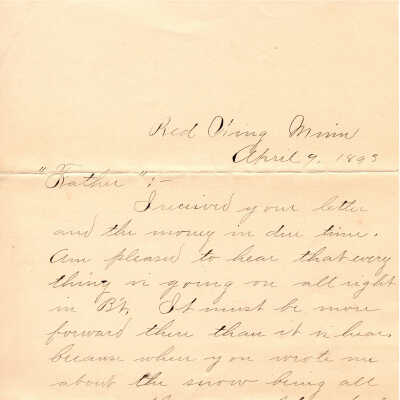 Red Wing Minn
April 9, 1893
"Father":-
I recieved your letter
and the money in due time.
Am pleased to hear that every
thing is going on all right
in It must be more
forward there than it is hear,
because when you wrote me
about the snow being all